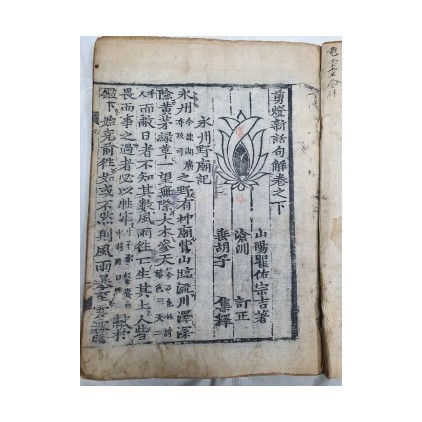 剪燈新話句解卷之下
山陽瞿佑宗吉著
滄洲 訂正
垂胡子 集釋
永州野廟記
永州之野有神廟背山臨流川澤深
險黃茅綠草一望無際大木參天
而蔽日者不知其數風雨往往生其上人皆
畏而事之過者必以牲牢獻於
殿下始克前往苟或不然則風雨暴至雲霧晦